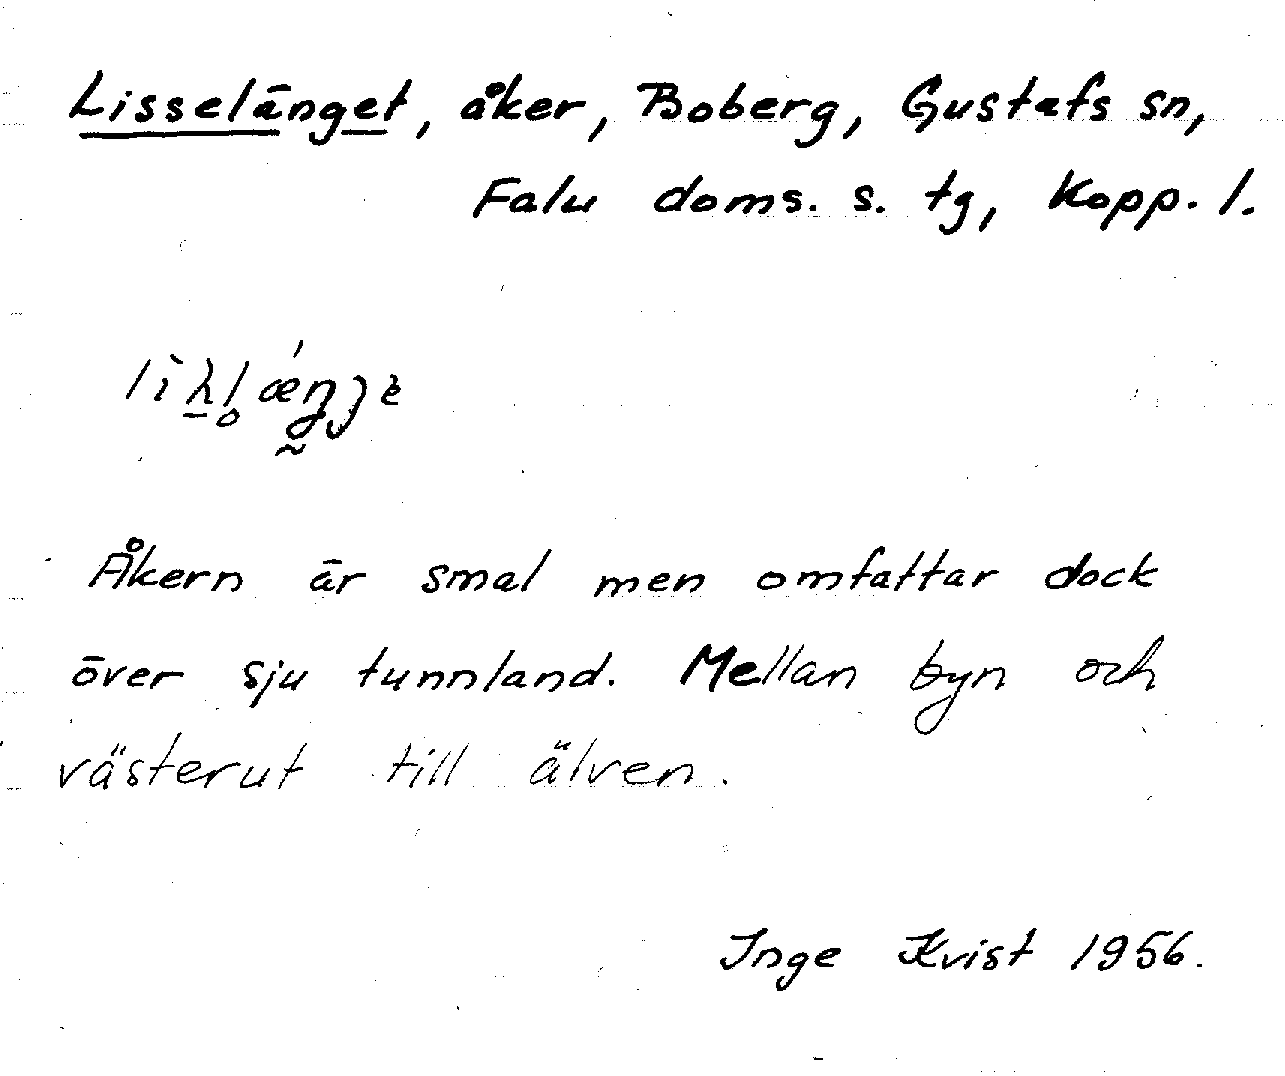 Lisselänget, åker, Boberg, Gustafs sn,
Falu doms. s. tg, Kopp. l.
Åkern är smal men omfattar dock
över sju tunnland. Mellan byn och
västerut till älven.
Inge Kvist 1956.